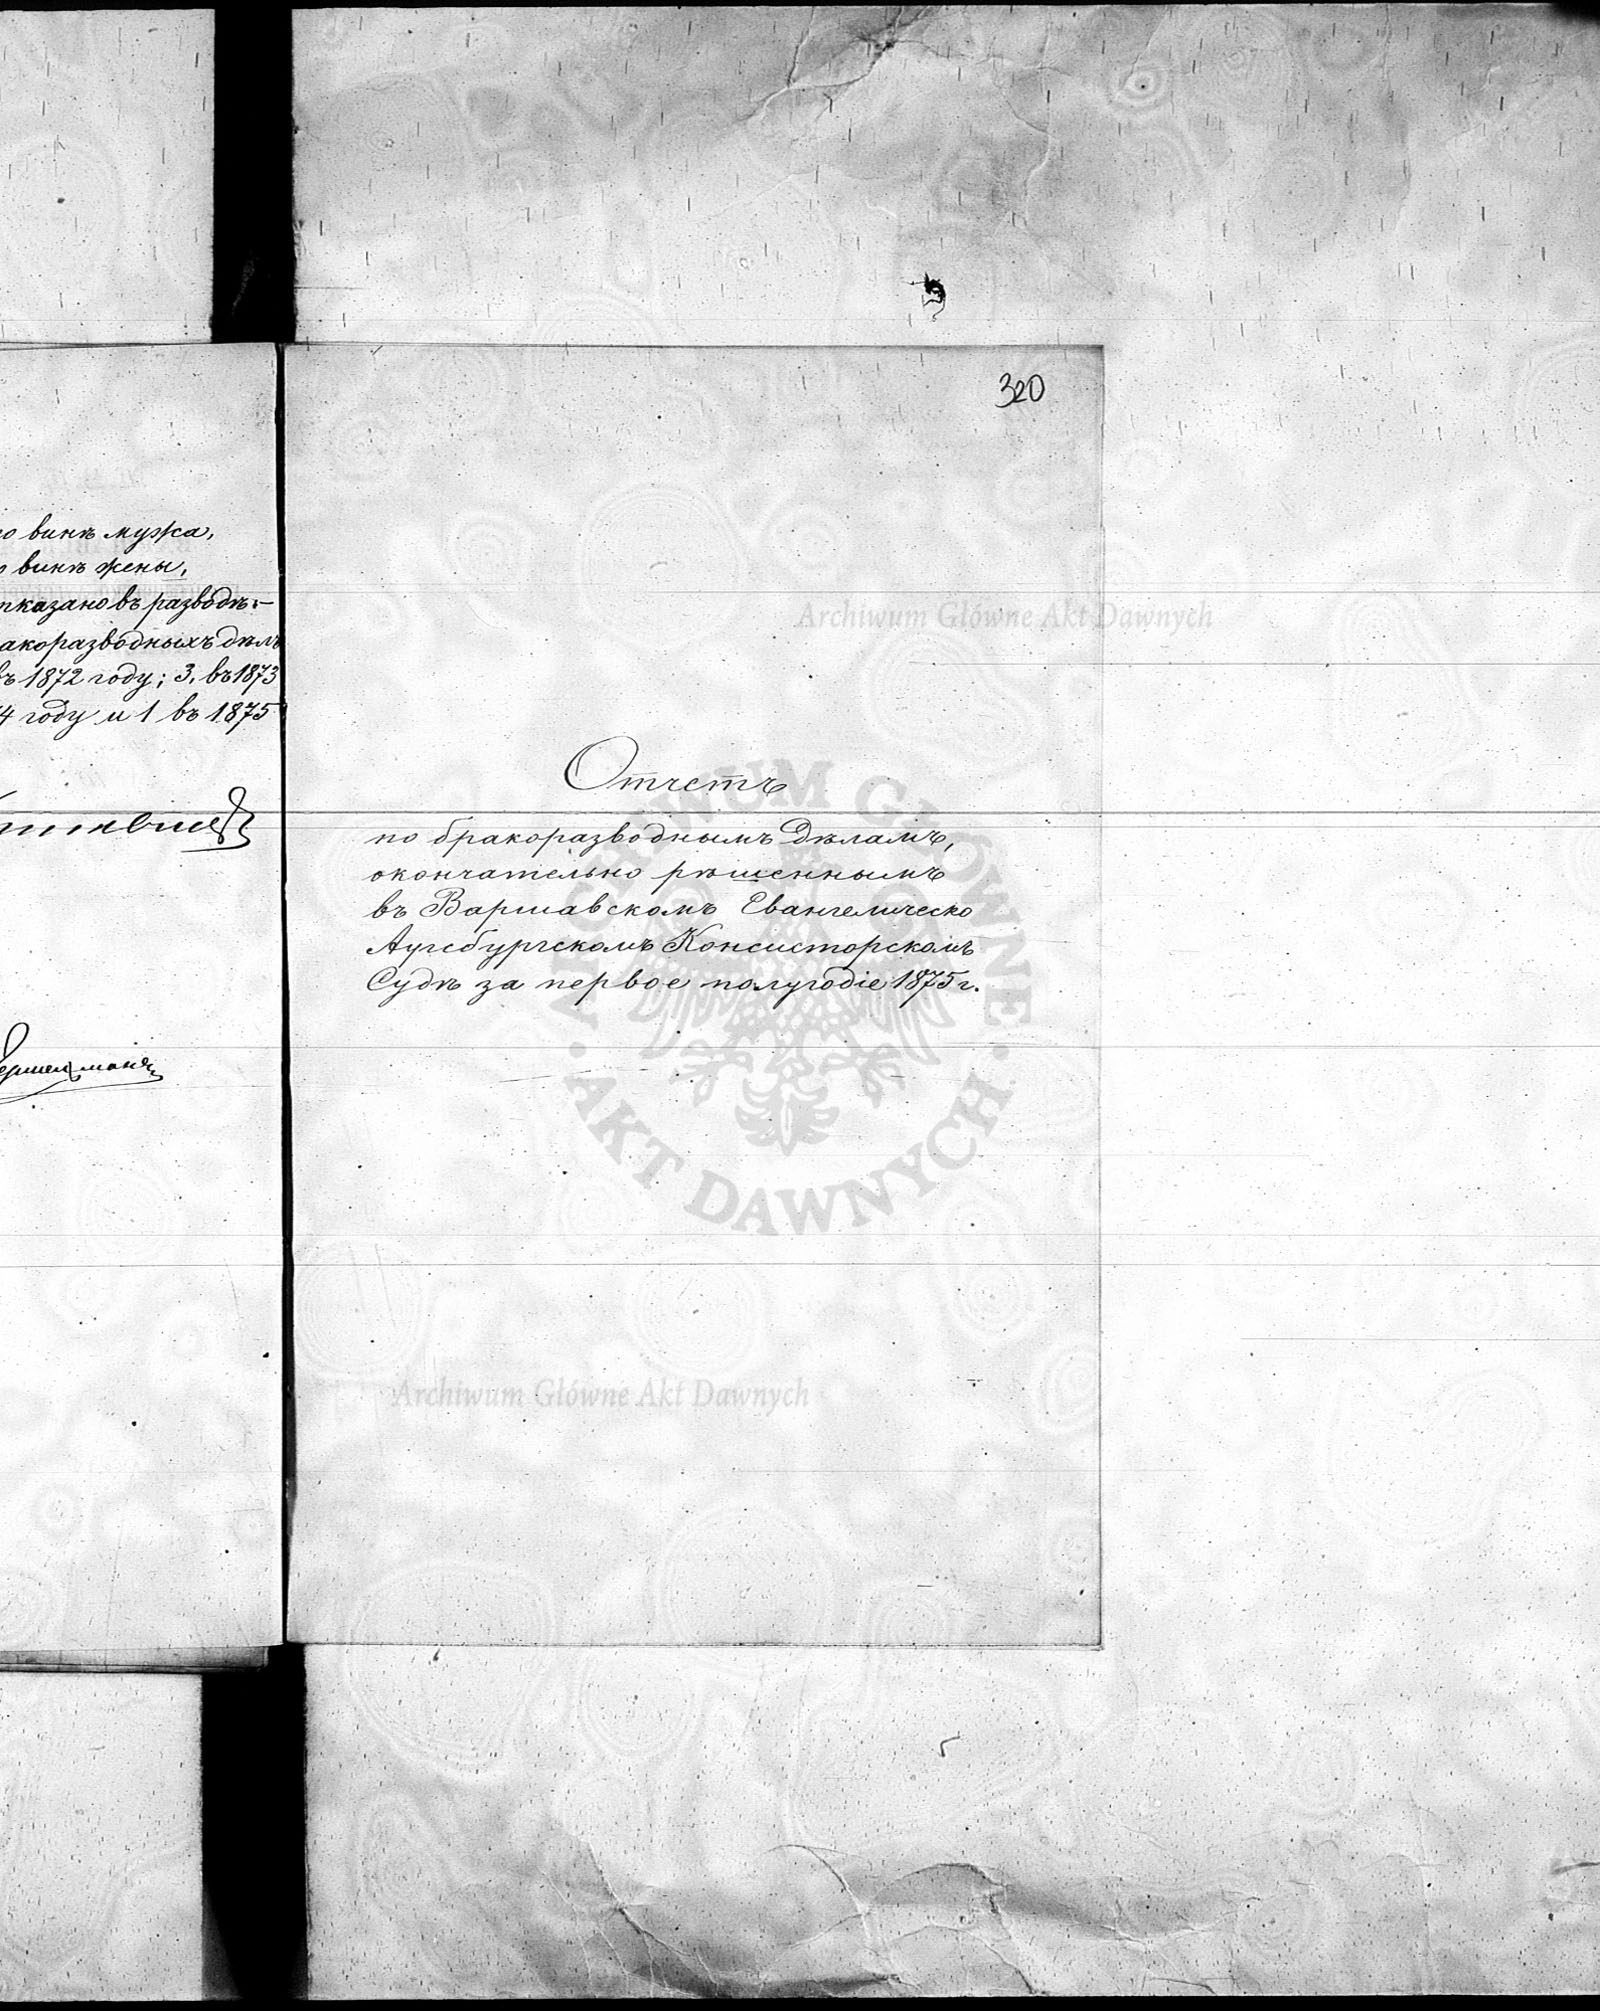 по винѣ мужа,
винѣ жены,
отказано въ разводѣ.—
бракоразводныхъ дѣлъ
въ 1872 году; 3. въ 1873
4 году и 1 въ 1875
320
Отчетъ
по бракоразводнымъ дѣламъ,
окончательно рѣшеннымъ
въ Варшавскомъ Евангелическо
Аугсбургскомъ Консисторскомъ
Судѣ за первое полугодіе 1875 г.
Archiwum Główne Akt Dawnych
ARCHIWUM GŁÓWNE · AKT DAWNYCH ·
Archiwum Główne Akt Dawnych